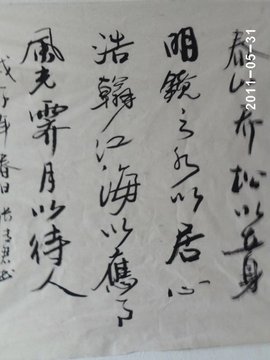 泰山乔松以立身
明镜之水以居心
浩瀚江海以應事
風光霽月以待人
戊子年春日
2011-05-31